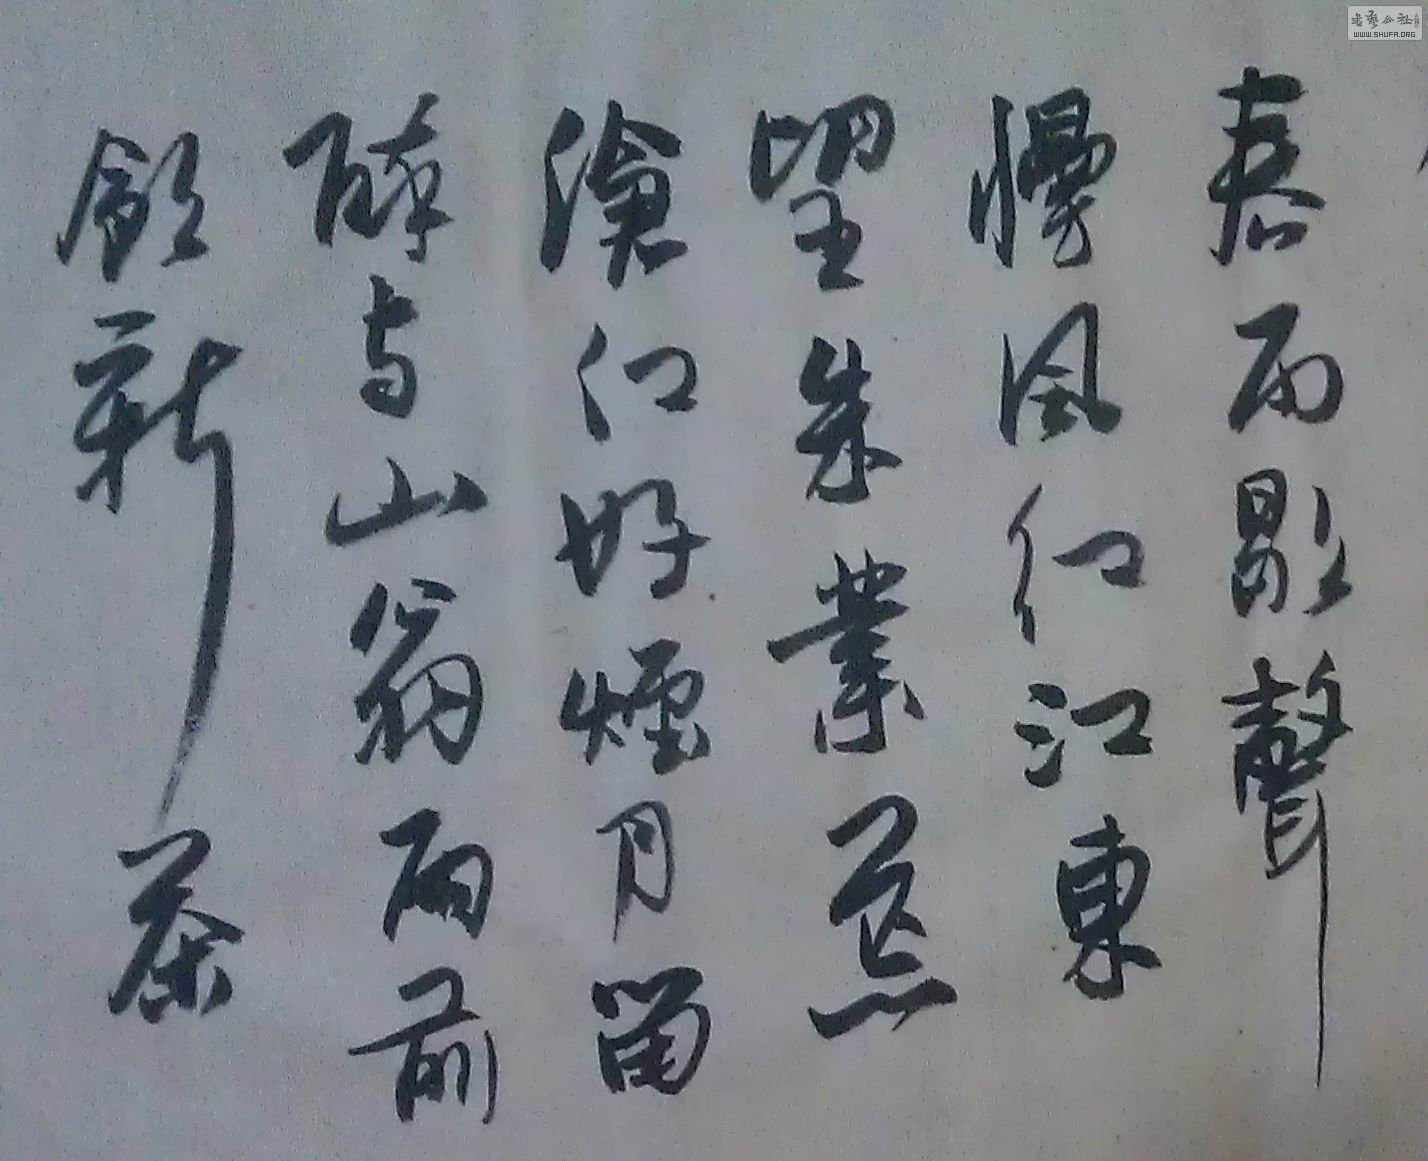 春雨歇聲
慢風江東
望朱業焦
滄江好煙月留
醉与山翁雨前
飲新茶
書藝公社
WWW.SHUFA.ORG